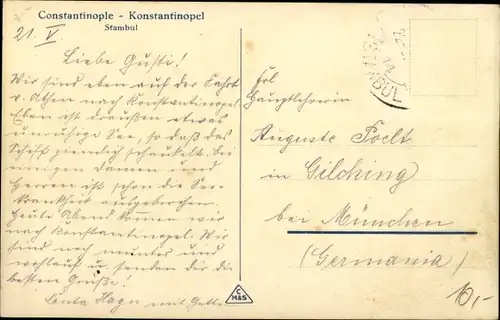 Constantinople - Konstantinopel
Stambul
21. V.
Liebe Gusti!
Wir sind eben auf der Fahrt
v. Athen nach Konstantinopel
Eben ist draußen etwas
unruhige See, so daß das
Schiff ziemlich schaukelt. Bei
einigen Damen und
Herren ist schon die See-
krankheit ausgebrochen.
Heute Abend kommen wir
nach Konstantinopel. Wir
sind noch munter und
wohlauf u. senden dir die
besten Grüße!
Hagn mit
Frl
Hauptlehrerin
Auguste
in Gilching
bei München
(Germania)
C
M&S
10,-